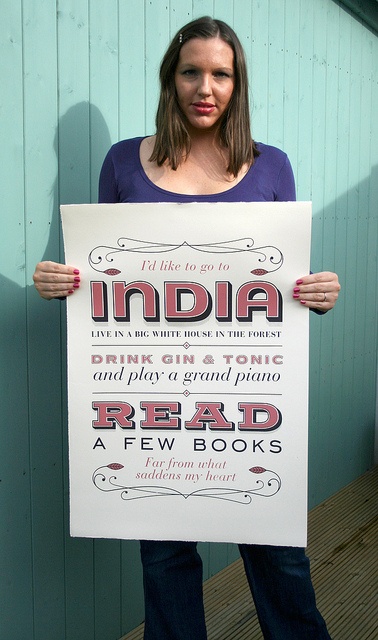 I'd like to go to
INDIA
LIVE IN A BIG WHITE HOUSE IN THE FOREST
DRINK GIN & TONIC
and play a grand piano
READ
A FEW BOOKS
Far from what
saddens my heart